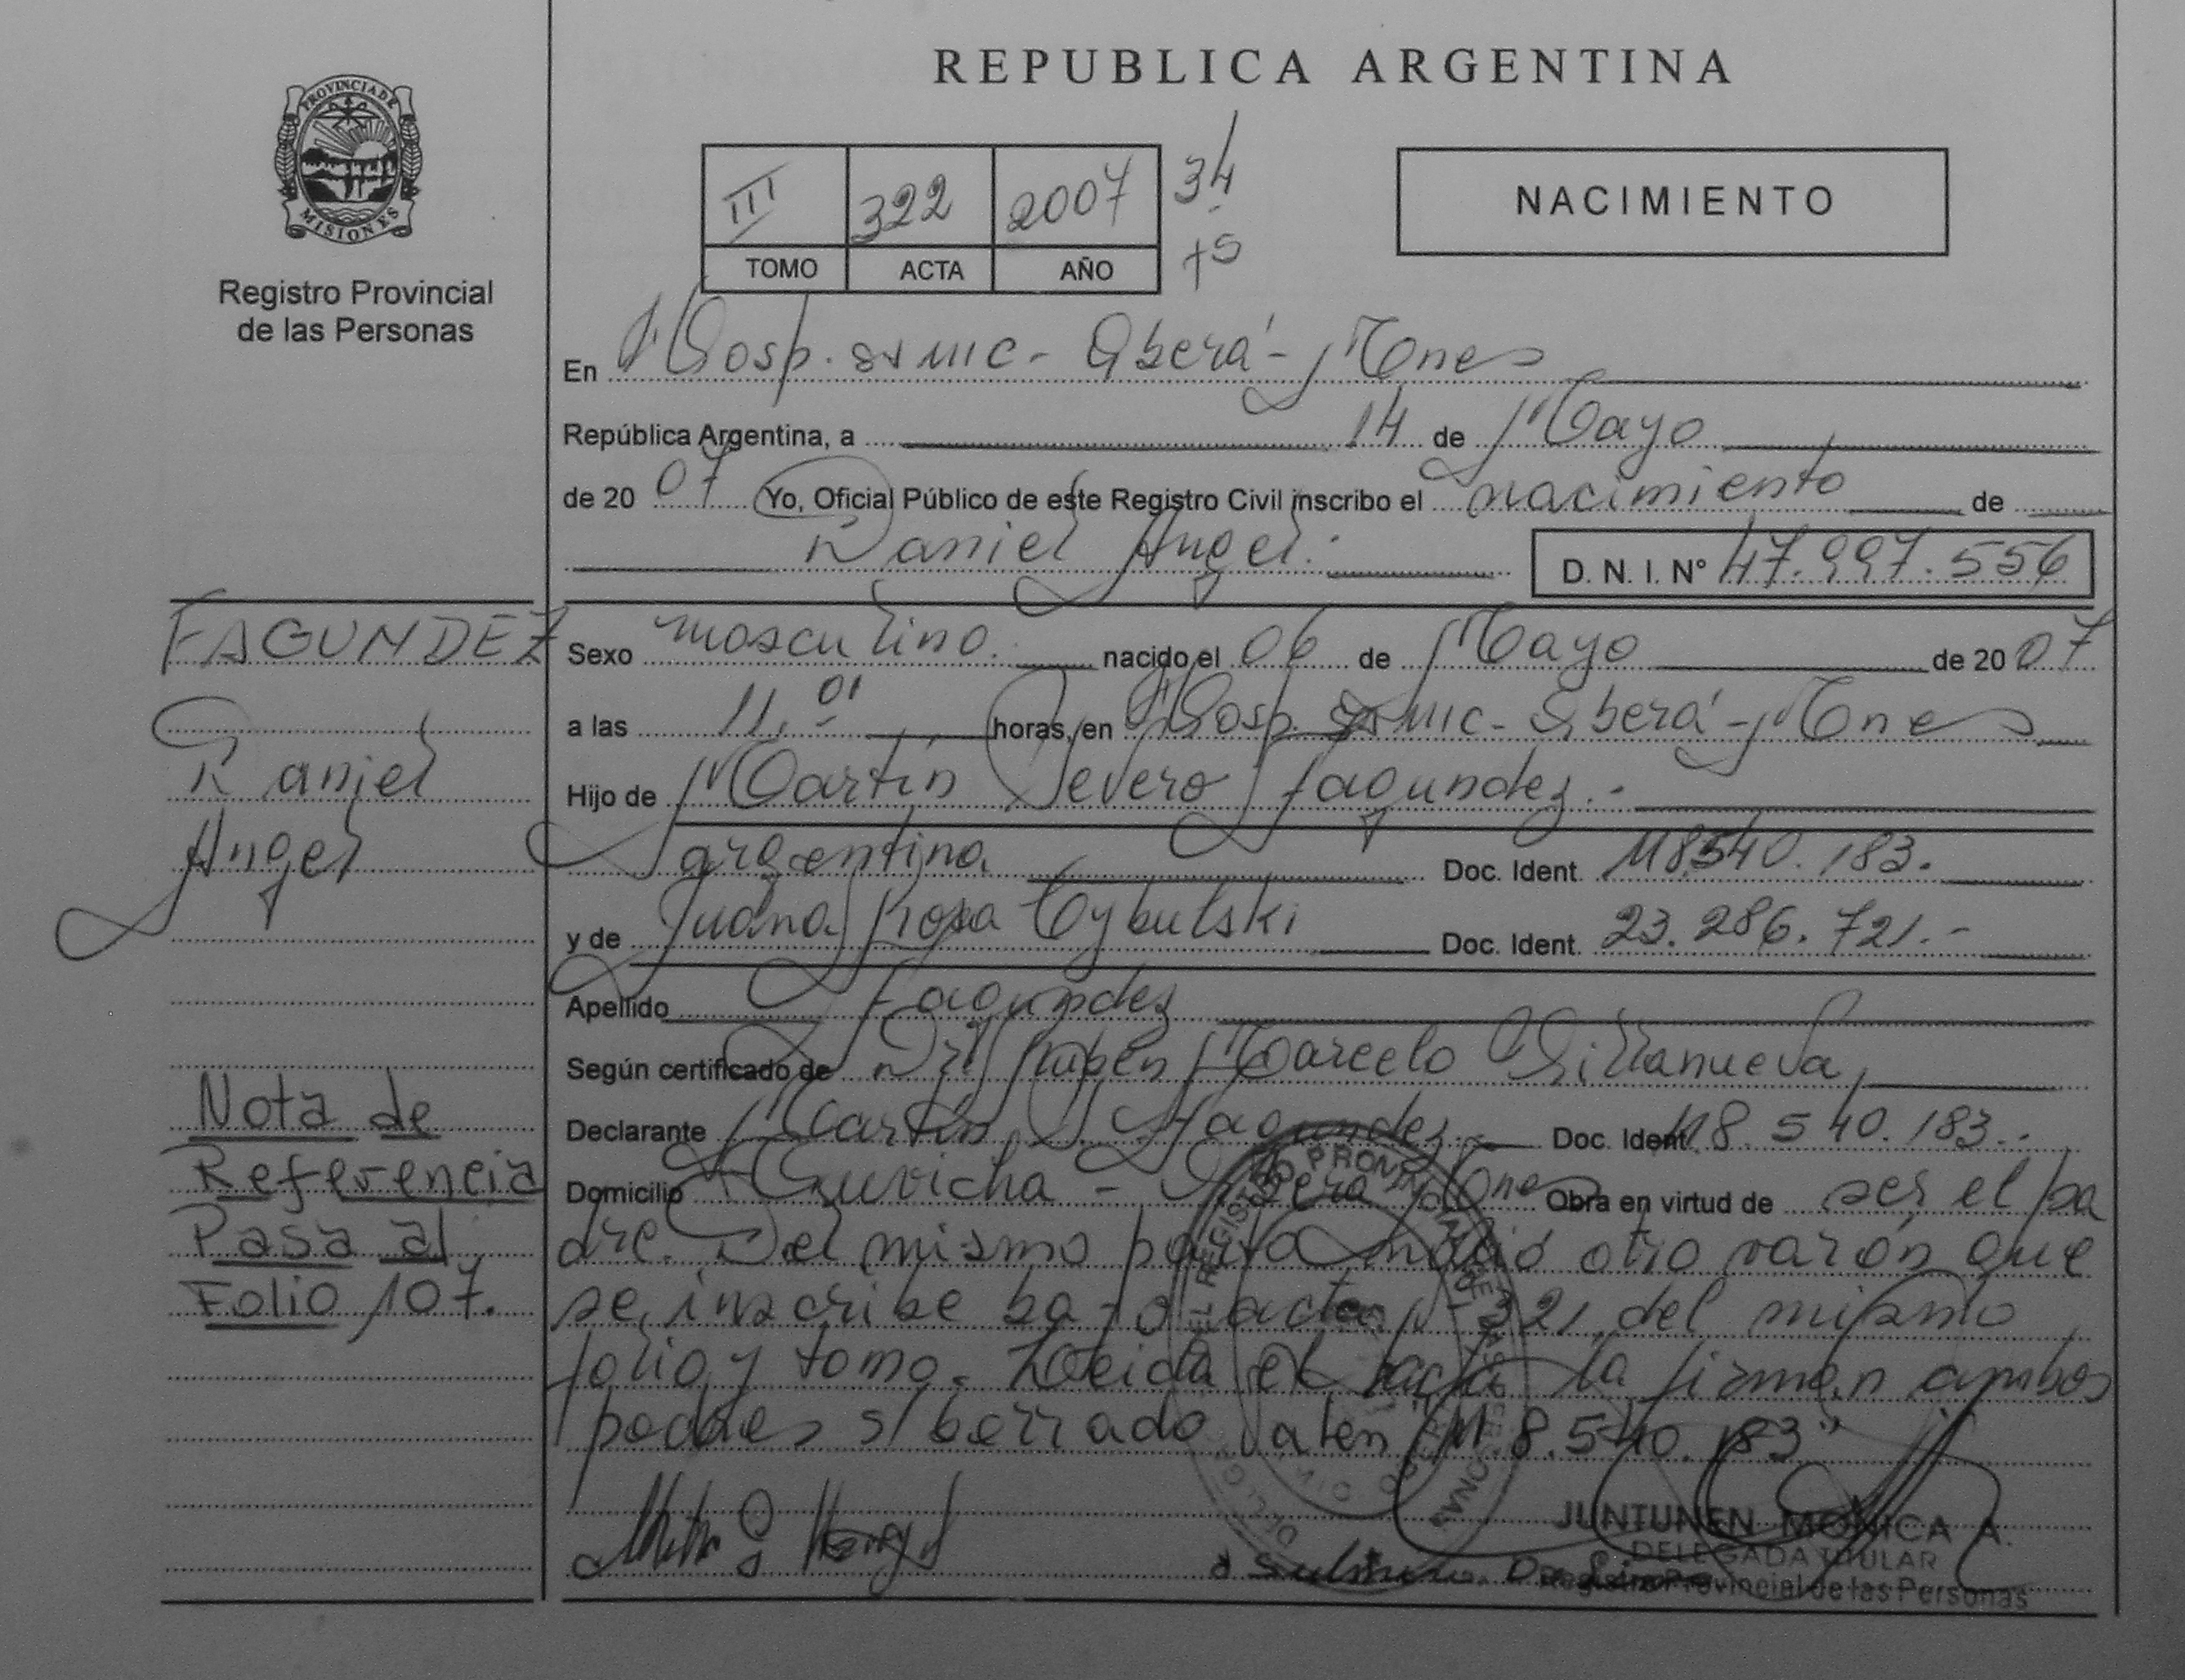 REPUBLICA ARGENTINA
PROVINCIA DE
MISIONES
Registro Provincial
de las Personas
III 322 2007 34
TOMO ACTA AÑO
NACIMIENTO
En Hosp. SAMIC - Oberá - Mones
República Argentina, a 14 de Mayo
de 20 07 Yo, Oficial Público de este Registro Civil inscribo el nacimiento de
Daniel Angel.
D. N. I. Nº 47.997.556
FAGUNDEZ
Daniel
Angel
Sexo masculino. nacido el 06 de Mayo de 20 07
a las 11,01 horas, en Hosp. SAMIC - Oberá - Mones
Hijo de Martín Severo Fagundez.-
argentina Doc. Ident. M8.540.183.
y de Juana Rosa Cybulski Doc. Ident. 23.286.721.-
Apellido Fagundez
Según certificado de Dr. Ruben Marcelo Villanueva,
Declarante Martín S. Fagundez.- Doc. Ident. M8.540.183.-
Domicilio Guvicha - Oberá Mones Obra en virtud de ser el pa
dre. Del mismo parto nació otro varón que
se inscribe bajo acta 321 del mismo
folio y tomo. Leída el acta la firman ambos
padres s/ borrado valen "M.8.540.183"
Nota de
Referencia
Pasa al
Folio 107.
JUNTUNEN MONICA A.
DELEGADA TITULAR
Registro Provincial de las Personas